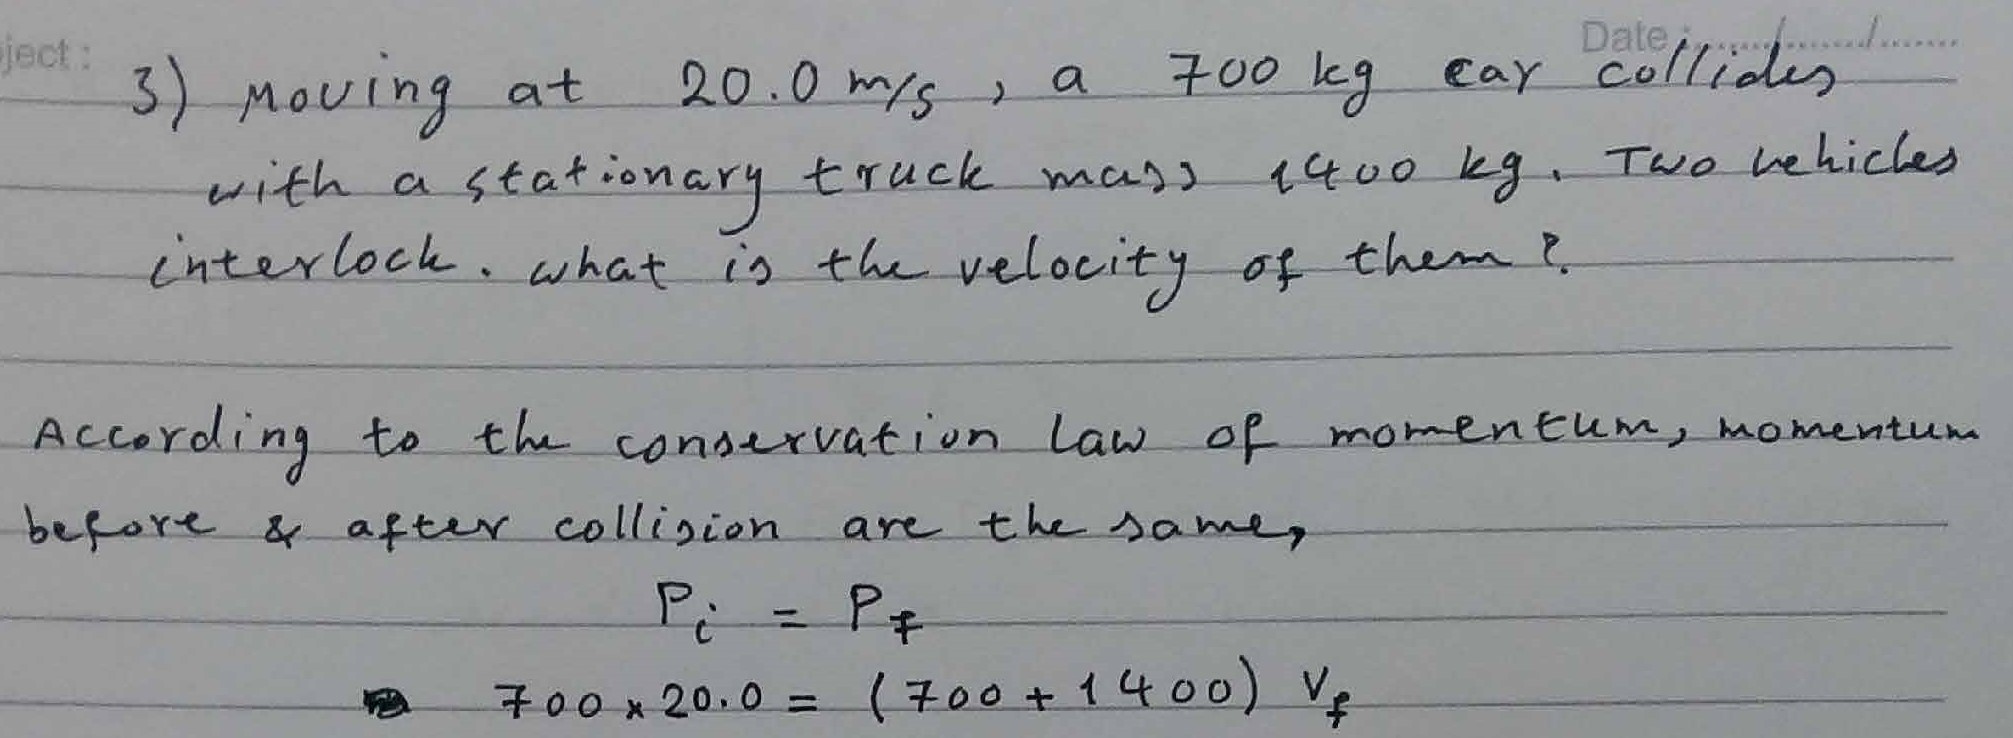 ject: Date:....../......./.......
3) Moving at 20.0 m/s, a 700 kg car collides
with a stationary truck mass 1400 kg. Two vehicles
interlock. what is the velocity of them?
According to the conservation law of momentum, momentum
before & after collision are the same,
Pi = Pf
700 × 20.0 = (700 + 1400) Vf